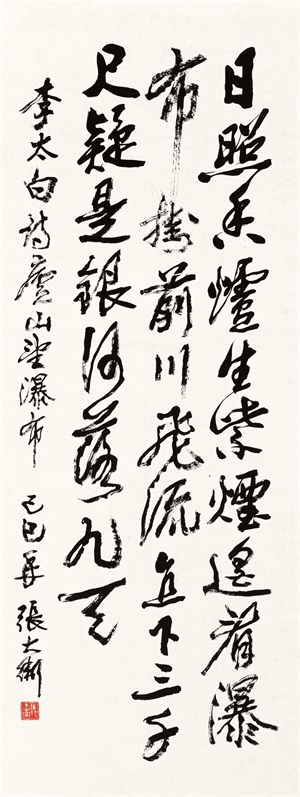 日照香爐生紫煙遙看瀑
布掛前川飛流直下三千
尺疑是銀河落九天
李太白詩廬山望瀑布
己巳年張大衛